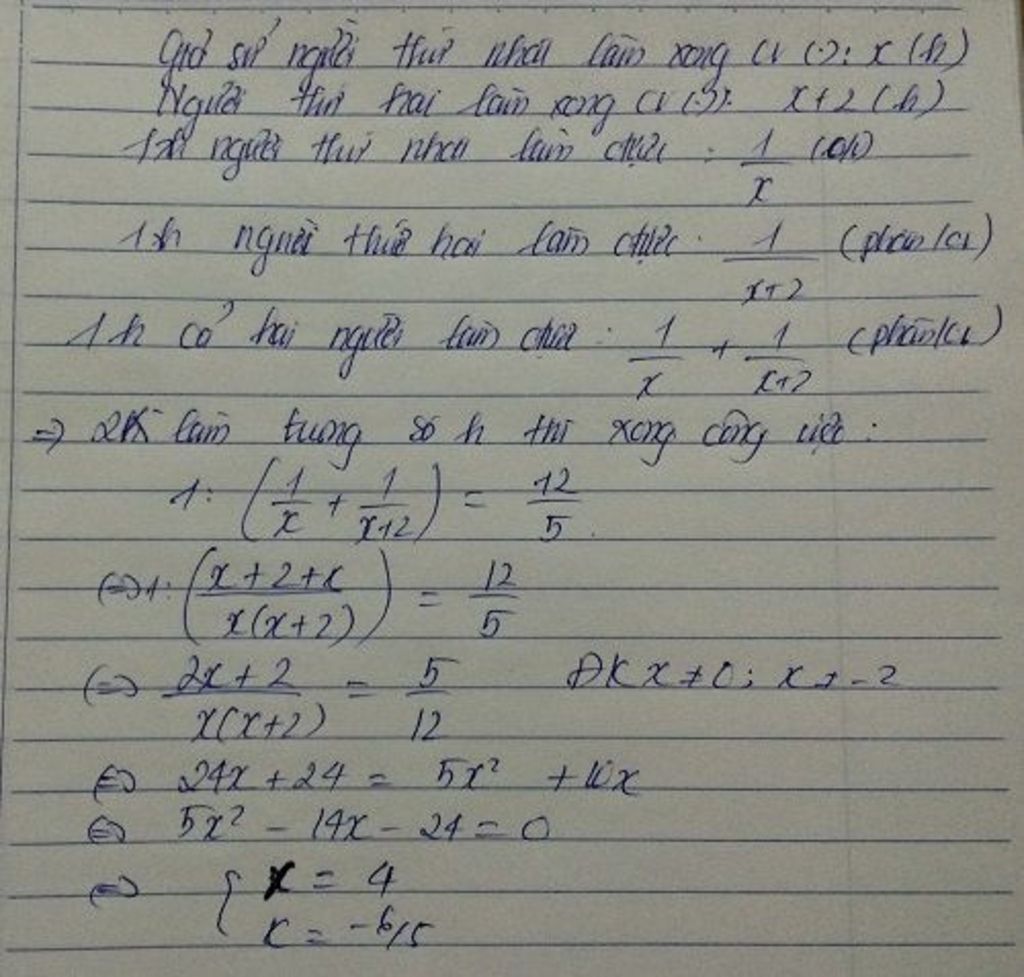 Giả sử người thứ nhất làm xong CV (.): x (h)
Người thứ hai làm xong CV (.): x+2 (h)
1h người thứ nhất làm được : 1/x
1h người thứ hai làm được : 1/(x+2) (phần/CV)
1h cả hai người làm được : 1/x + 1/(x+2) (phần/CV)
=> làm trong số h thì xong công việc :
1: (1/x + 1/(x+2)) = 12/5
(=> 1: ((x+2+x)/(x(x+2))) = 12/5
(=> (2x+2)/(x(x+2)) = 5/12 ĐK x ≠ 0; x ≠ -2
<=> 24x + 24 = 5x² + 10x
<=> 5x² - 14x - 24 = 0
<=> { x = 4
x = -6/5